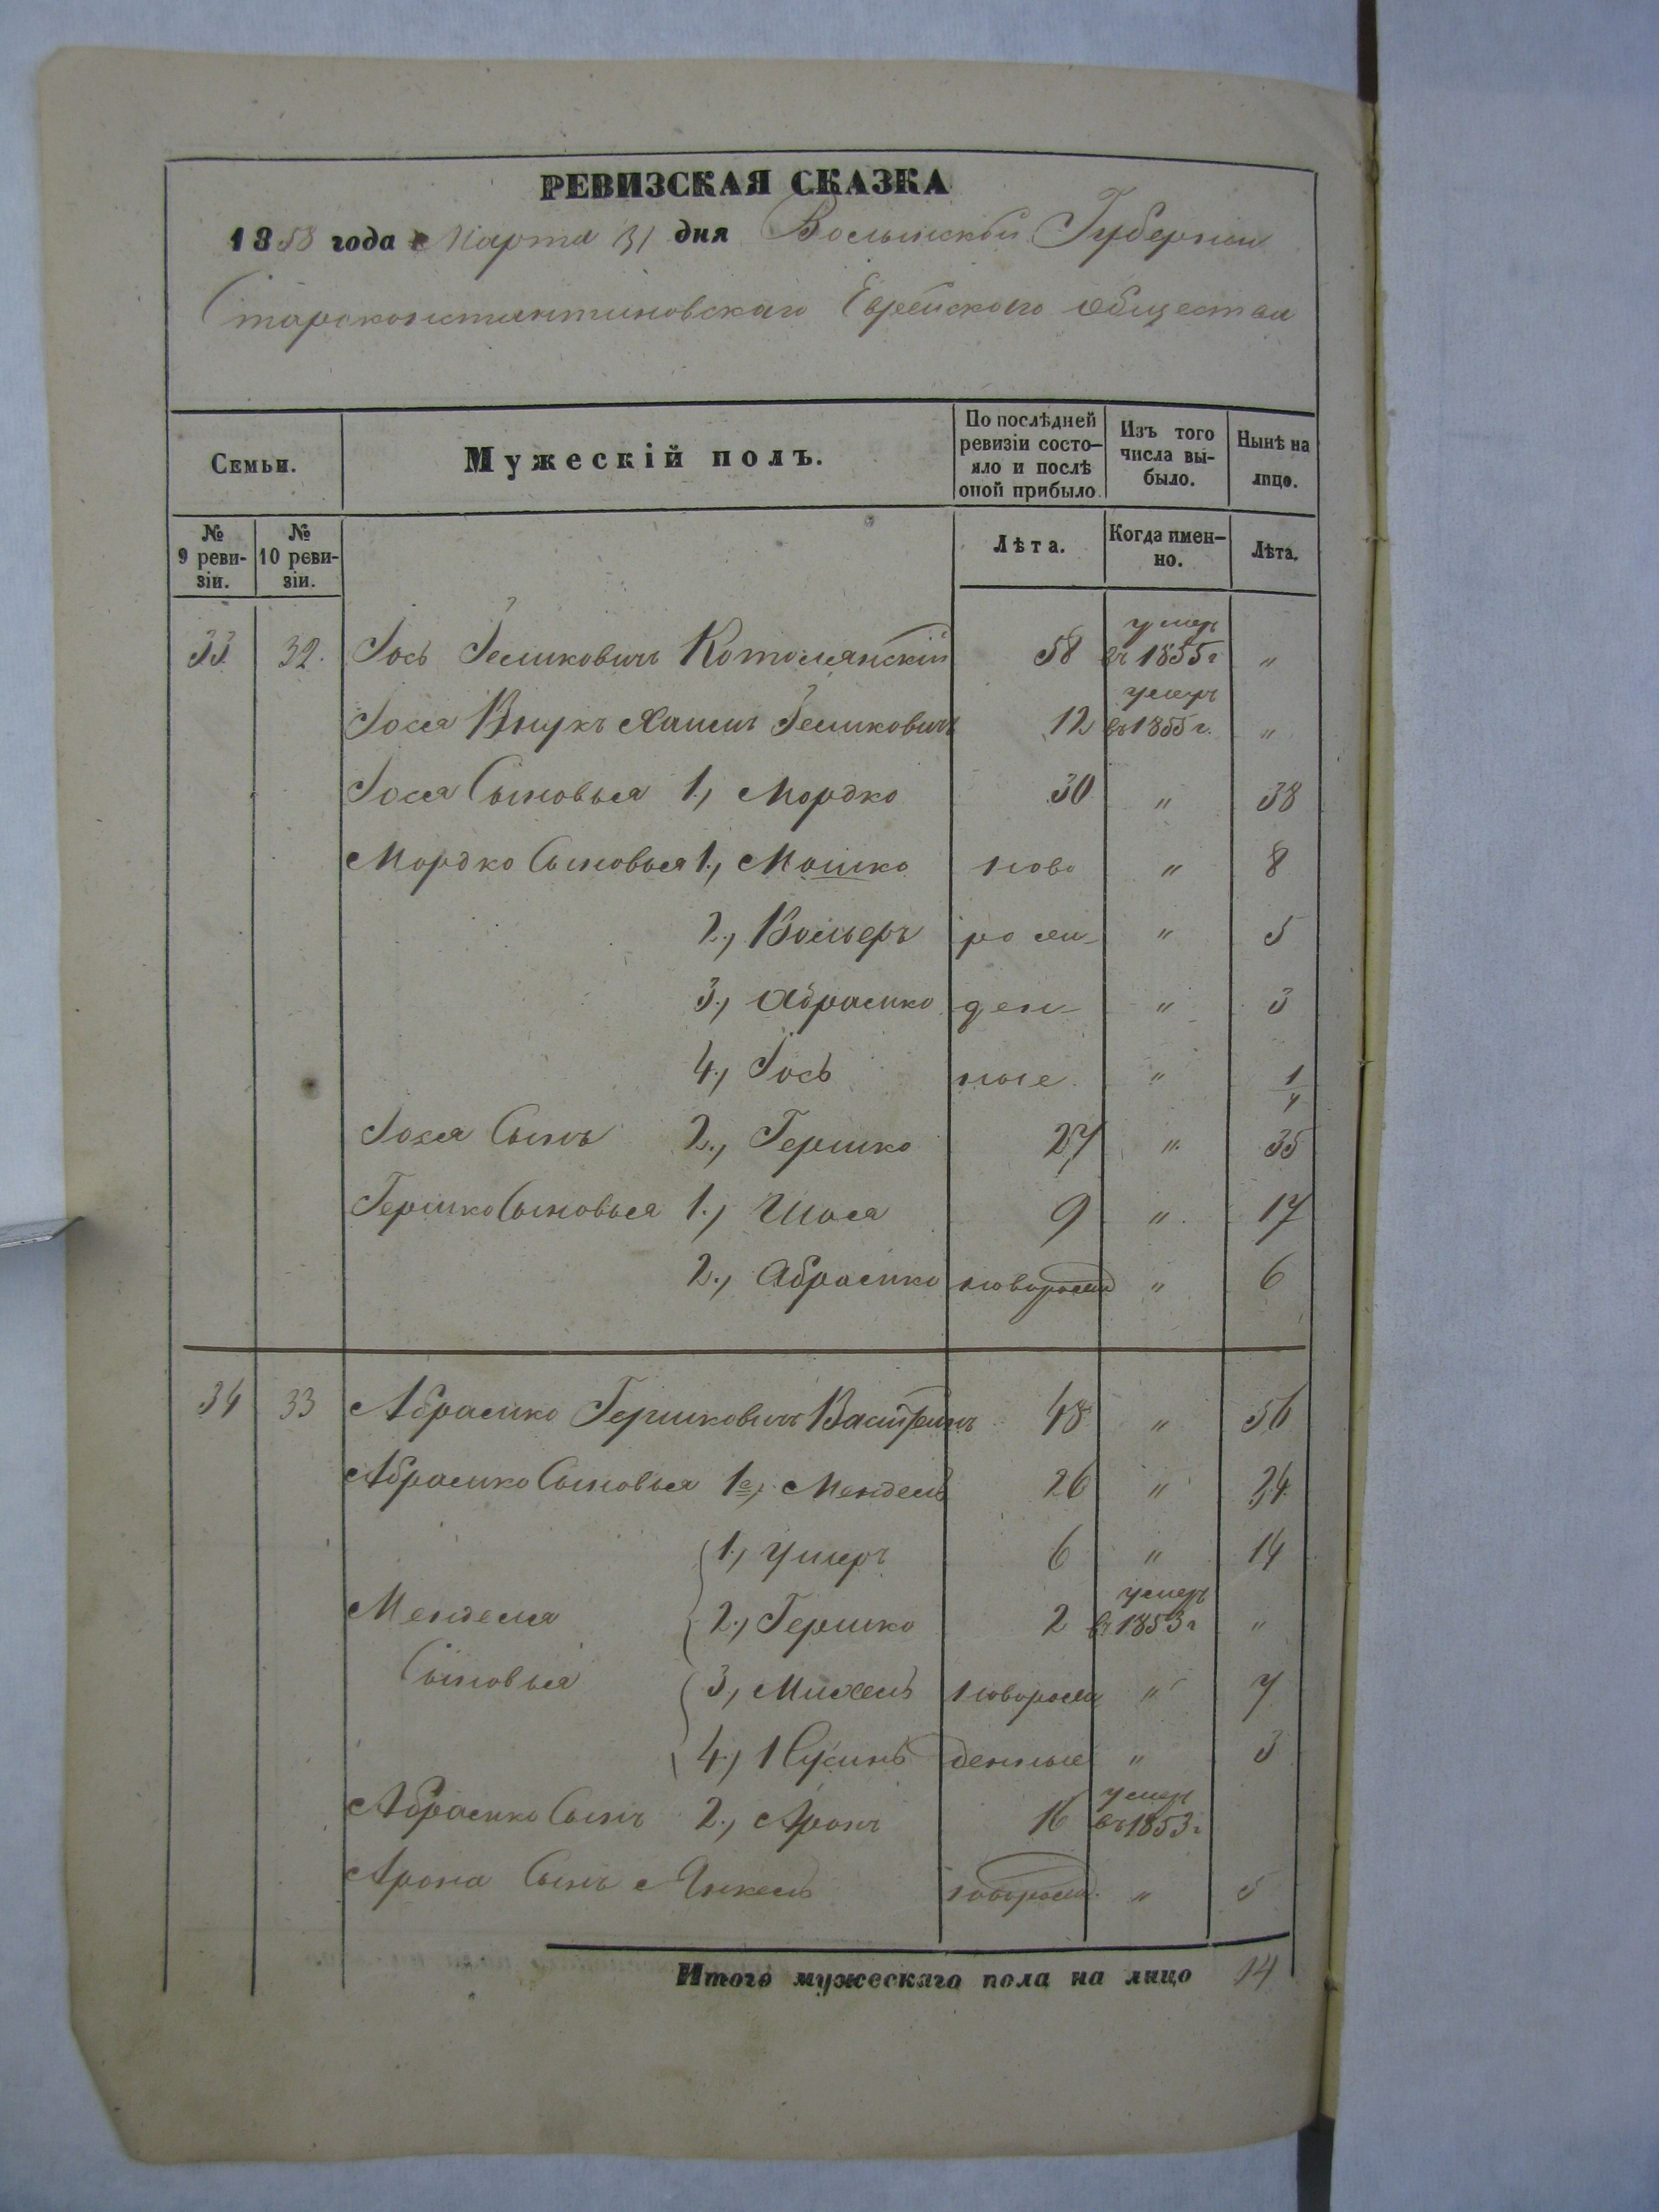 РЕВИЗСКАЯ СКАЗКА
1858 года Марта 31 дня Волынской Губернии
Староконстантиновскаго Еврейского общества
Семьи. Мужескій полъ. По послѣдней ревизіи состояло и послѣ оной прибыло. Изъ того числа выбыло. Нынѣ на лицо.
№ 9 ревизіи. № 10 ревизіи. Лѣта. Когда именно. Лѣта.
33 32. Іось Зеликовичъ 58 умеръ въ 1855 г "
Іося Внукъ Хаимъ Зеликовичъ 12 умеръ въ 1855 г. "
Іося Сыновья 1., Мордко 30 " 38
Мордко Сыновья 1., Мошко ново " 8
2., Вольеръ рож " 5
3., Абрамко ден " 3
4., Іось ные " 1/4
Іося Сынъ 2., Гершко 27 " 35
Гершко Сыновья 1., Шая 9 " 17
2., Абрамко новорожд " 6
34 33 Абрамко Гершковичъ 48 " 56
Абрамко Сыновья 1е, Мендель 26 " 34
1., Ушеръ 6 " 14
Менделя 2., Гершко 2 умеръ въ 1853 г "
Сыновья 3., Михель новорож " 7
4., Нусинъ денные " 3
Абрамко Сынъ 2., Аронъ 16 умеръ въ 1853 г
Арона Сынъ Янкель новорожд. " 5
Итого мужескаго пола на лицо 14